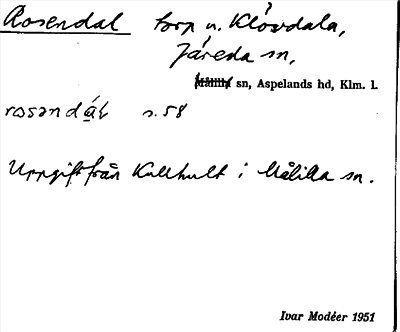 Rosendal torp u. Klövdala,
Järeda sn,
Målilla sn, Aspelands hd, Klm. l.
rosəndɑ́l s. 58
Uppgift från Kullhult i Målilla sn.
Ivar Modéer 1951